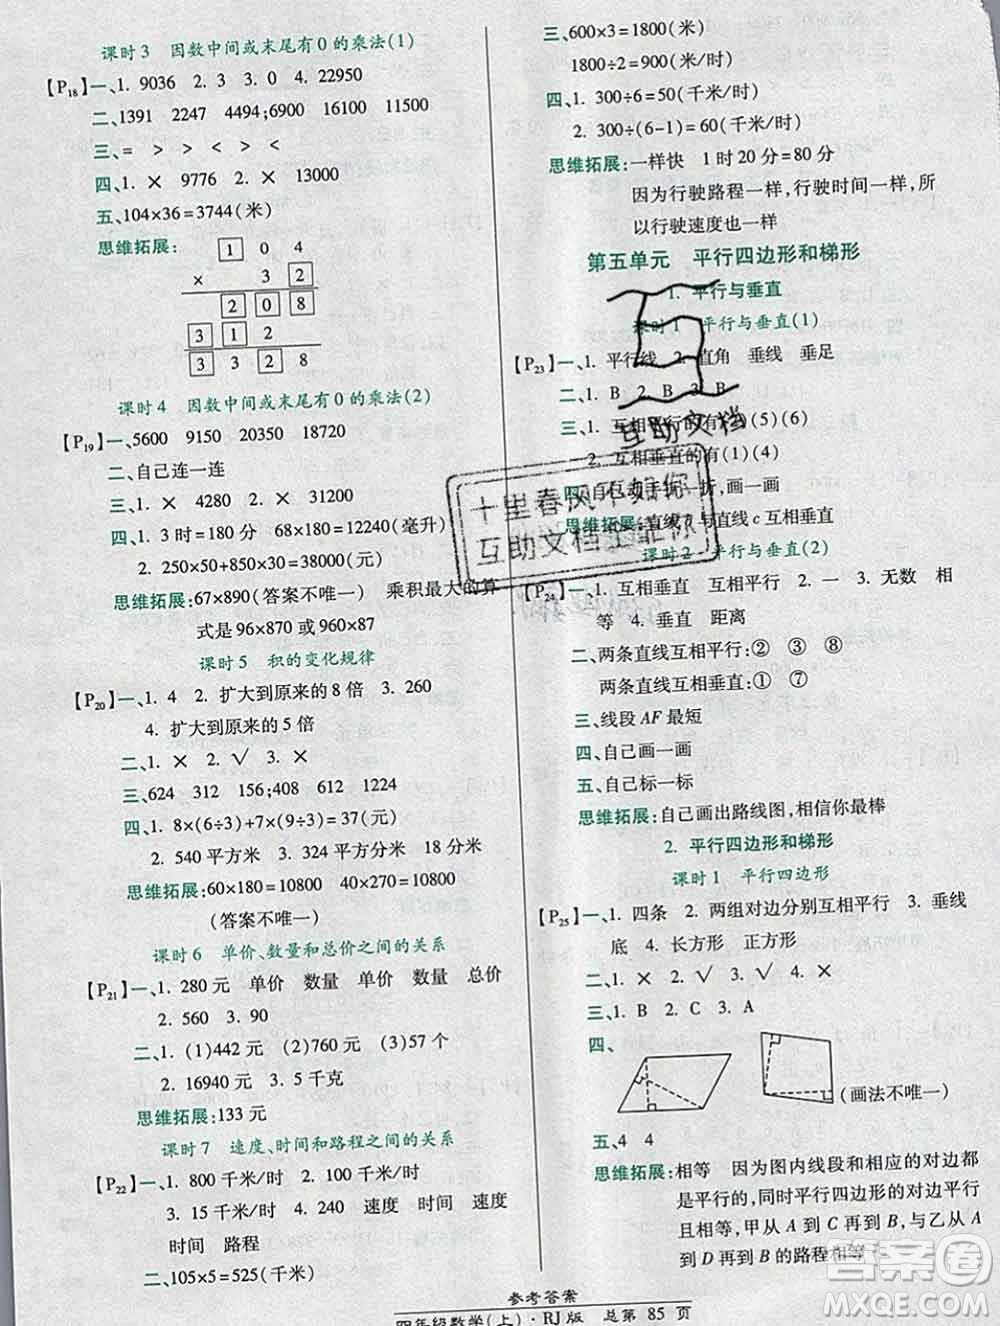 课时3 因数中间或末尾有0的乘法(1)
【P18】一、1. 9036 2. 3 3. 0 4. 22950
二、1391 2247 4494;6900 16100 11500
三、= > > > < <
四、1. × 9776 2. × 13000
五、104×36=3744(米)
思维拓展:
1 0 4
× 3 2
2 0 8
3 1 2
3 3 2 8
课时4 因数中间或末尾有0的乘法(2)
【P19】一、5600 9150 20350 18720
二、自己连一连
三、1. × 4280 2. × 31000
四、1. 3时=180分 68×180=12240(毫升)
2. 250×50+850×30=38000(元)
思维拓展:67×890(答案不唯一) 乘积最大的算
式是96×870或960×87
课时5 积的变化规律
【P20】一、1. 4 2. 扩大到原来的8倍 3. 260
4. 扩大到原来的5倍
二、1. × 2. √ 3. ×
三、624 312 156;408 612 1224
四、1. 8×(6÷3)+7×(9÷3)=37(元)
2. 540平方米 3. 324平方米 18分米
思维拓展:60×180=10800 40×270=10800
(答案不唯一)
课时6 单价、数量和总价之间的关系
【P21】一、1. 280元 单价 数量 单价 数量 总价
2. 560 3. 90
二、1. (1)442元 (2)760元 (3)57个
2. 16940元 3. 5千克
思维拓展:133元
课时7 速度、时间和路程之间的关系
【P22】一、1. 800千米/时 2. 100千米/时
3. 15千米/时 4. 240 速度 时间 速度
时间 路程
二、105×5=525(千米)
三、600×3=1800(米)
1800÷2=900(米)
四、1. 300÷6=50(千米/时)
2. 300÷(6-1)=60(千米/时)
思维拓展:一样快 1时20分=80分
因为行驶路程一样,行驶时间一样,所
以行驶速度也一样
第五单元 平行四边形和梯形
1. 平行与垂直
课时1 平行与垂直(1)
【P23】一、1. 平行线 2. 直角 垂线 垂足
二、1. B 2. B 3. B
三、1. 互相平行的有(5)(6)
2. 互相垂直的有(1)(4)
四、自己动手折一折,画一画
思维拓展:直线 与直线c互相垂直
课时2 平行与垂直(2)
【P24】一、1. 互相垂直 互相平行 2. 一 3. 无数 相
等 4. 垂直 距离
二、两条直线互相平行:② ③ ⑧
两条直线互相垂直:① ⑦
三、线段AF最短
四、自己画一画
五、自己标一标
思维拓展:自己画出路线图,相信你最棒
2. 平行四边形和梯形
课时1 平行四边形
【P25】一、1. 四条 2. 两组对边分别互相平行 3. 垂线
底 4. 长方形 正方形
二、1. × 2. √ 3. √ 4. ×
三、1. B 2. C 3. A
四、
(画法不唯一)
五、4 4
思维拓展:相等 因为图内线段和相应的对边都
是平行的,同时平行四边形的对边平行
且相等,甲从A到C再到B,与乙从A
到D再到B的路程相等
互助文档
十里春风不如你
互助文档
答案圈
参考答案
四年级数学(上)·RJ版 总第 85 页